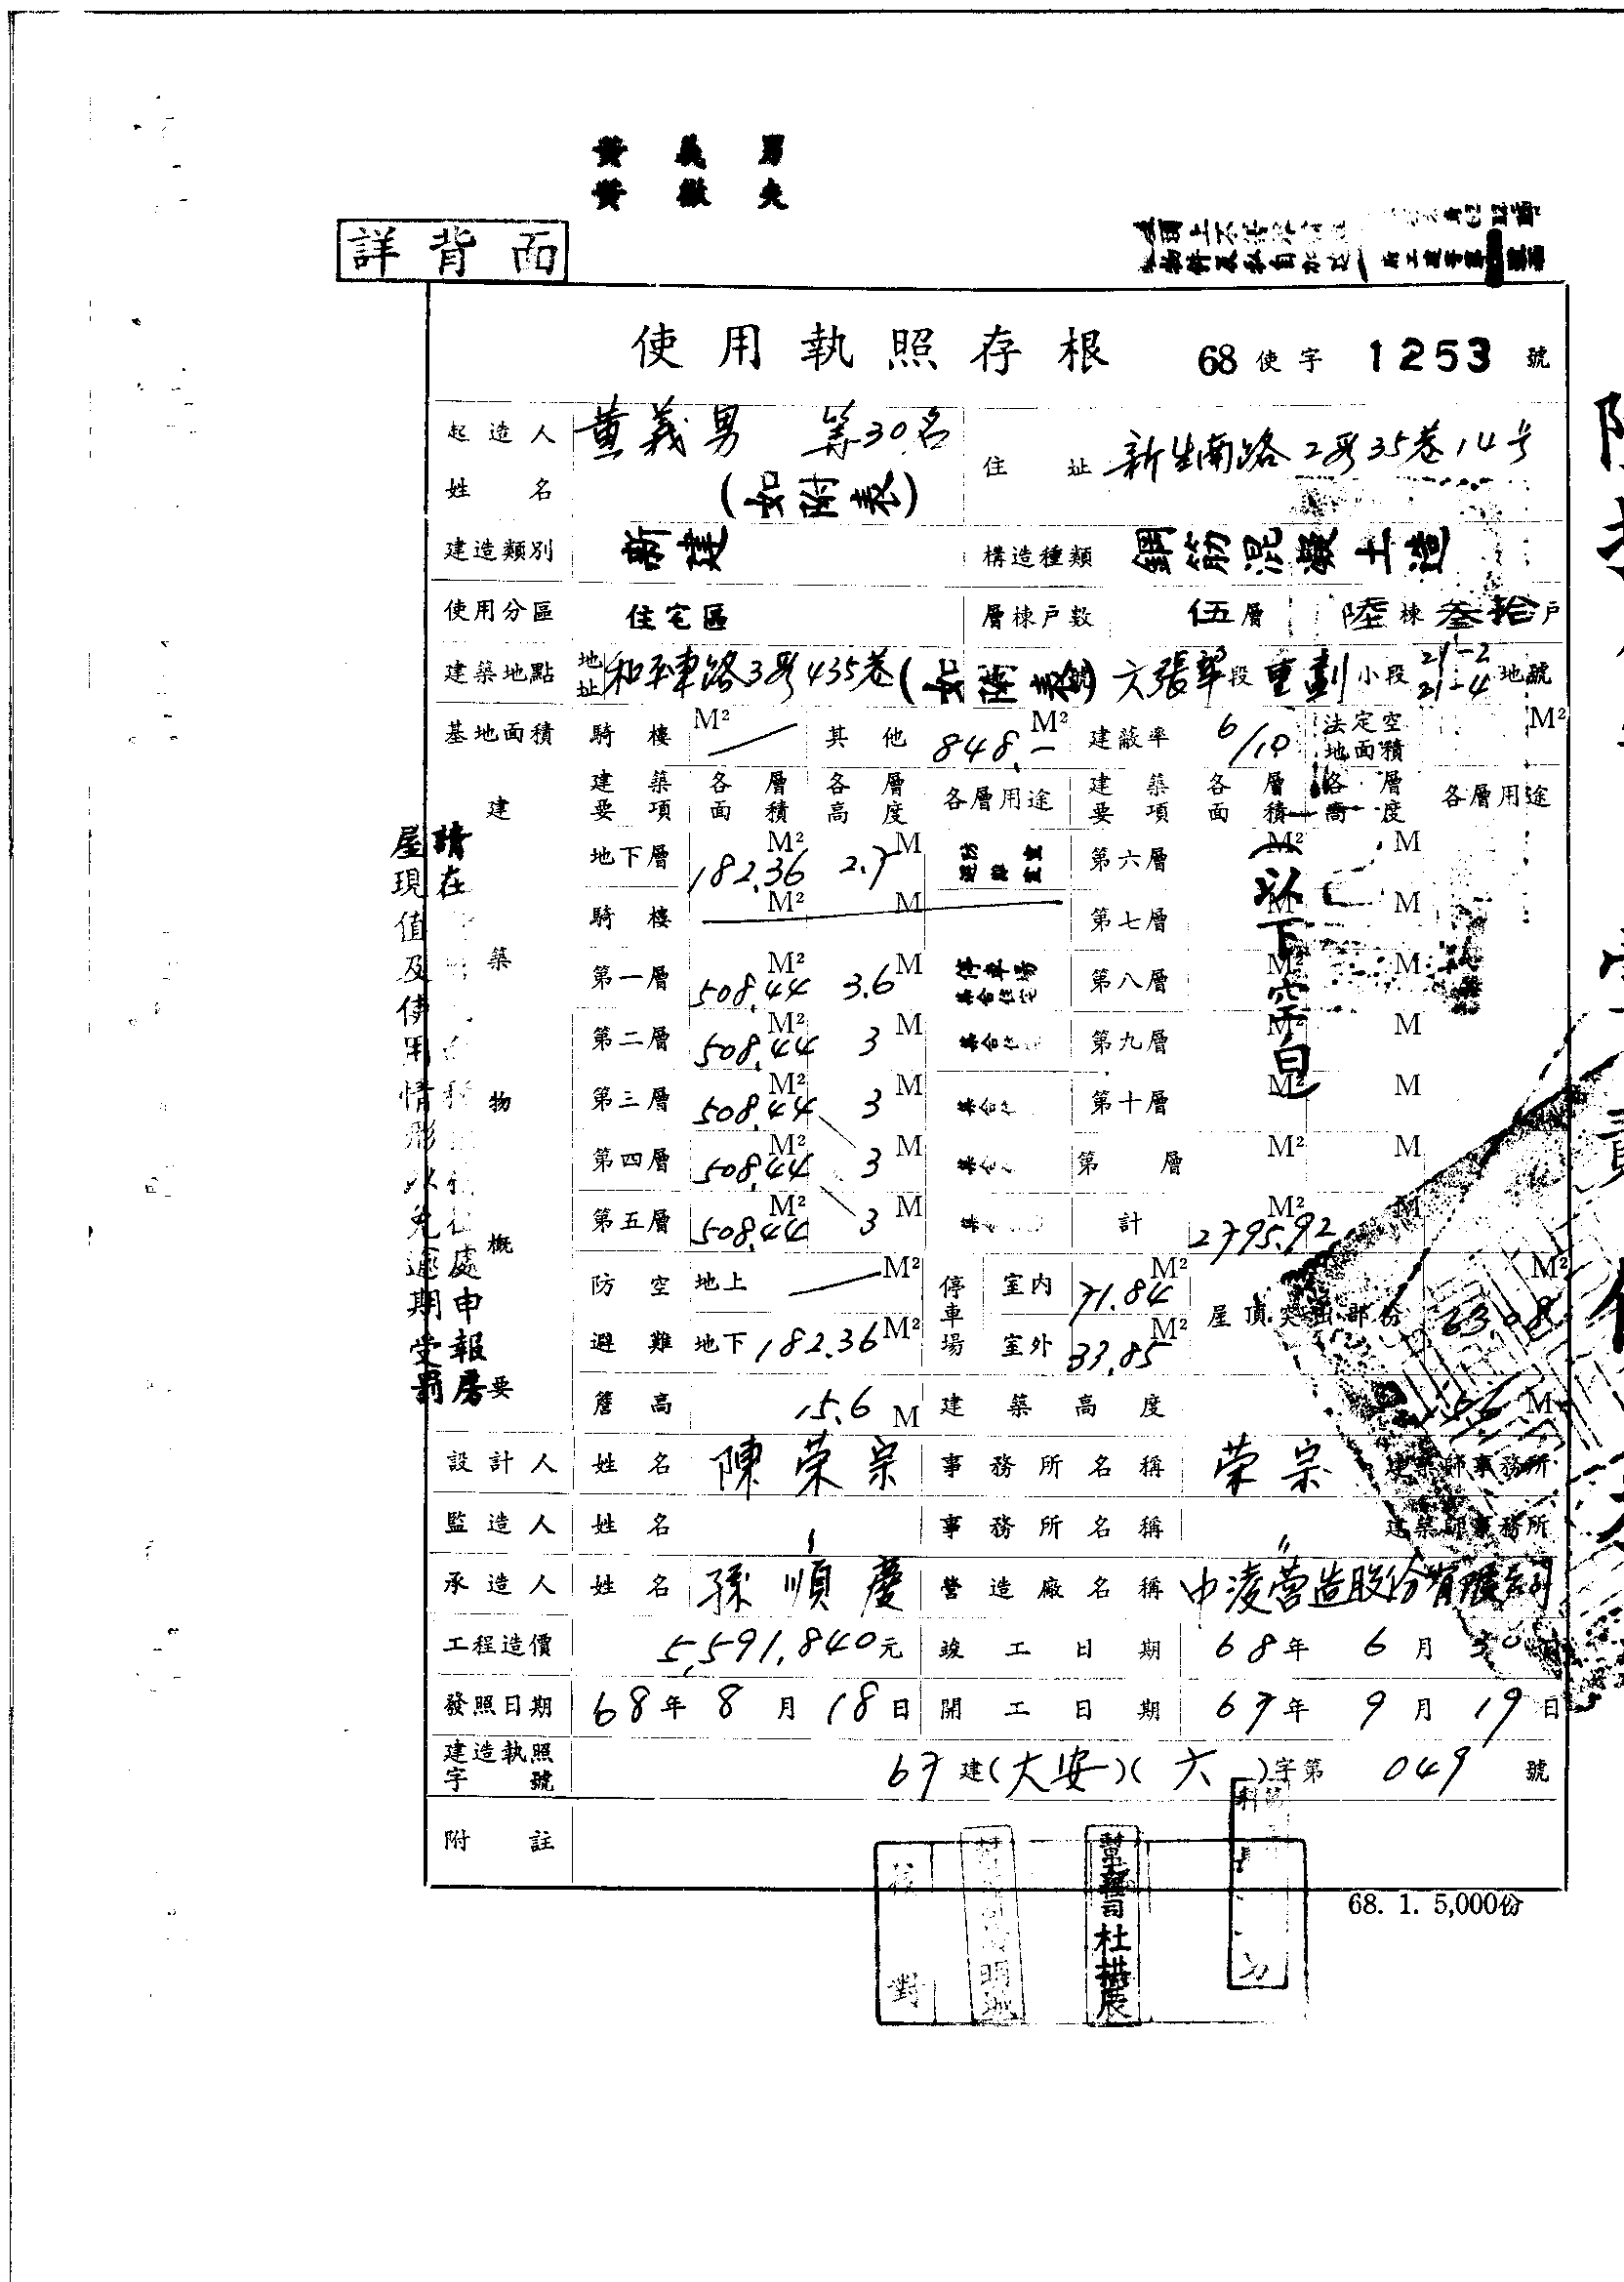 黃義男
黃徽夫
詳背面
使用執照存根 68使字 1253 號
起造人姓名 黃義男 等30名 (如附表) 住址 新生南路2段35巷14号
建造類別 新建 構造種類 鋼筋混凝土造
使用分區 住宅區 層棟戶數 伍層 陸棟 叁拾戶
建築地點 地址 和平東路3段435巷(如附表) 六張犁段 重劃小段 21-2 21-4 地號
基地面積 騎樓 M² 其他 848.- M² 建蔽率 6/10 法定空地面積 M²
建築要項 各層面積 各層高度 各層用途 建築要項 各層面積 各層高度 各層用途
建築物概要
地下層 182.36 M² 2.7 M 第六層 M² M
騎樓 M² M 第七層 M² M
第一層 508.44 M² 3.6 M 停車場 集合住宅 第八層 M² M
第二層 508.44 M² 3 M 集合 第九層 M² M
第三層 508.44 M² 3 M 集合 第十層 M² M
第四層 508.44 M² 3 M 集合 第 層 M² M
第五層 508.44 M² 3 M 計 2795.92 M² M
(以下空白)
防空避難 地上 M² 停車場 室內 71.84 M² 屋頂突出部份 63.08 M²
地下 182.36 M² 室外 33.85 M²
簷高 15.6 M 建築高度 15.6 M
設計人 姓名 陳荣宗 事務所名稱 荣宗 建築師事務所
監造人 姓名 〃 事務所名稱 〃 建築師事務所
承造人 姓名 孫順慶 營造廠名稱 中淩营造股份有限公司
工程造價 5,591,840元 竣工日期 68年6月30日
發照日期 68年8月18日 開工日期 67年9月19日
建造執照字號 67建(大安)(六)字第 049 號
附註
請在
處申報房
屋現值及使用情形以免逾期受罰
68. 1. 5,000份
核對
杜拱辰